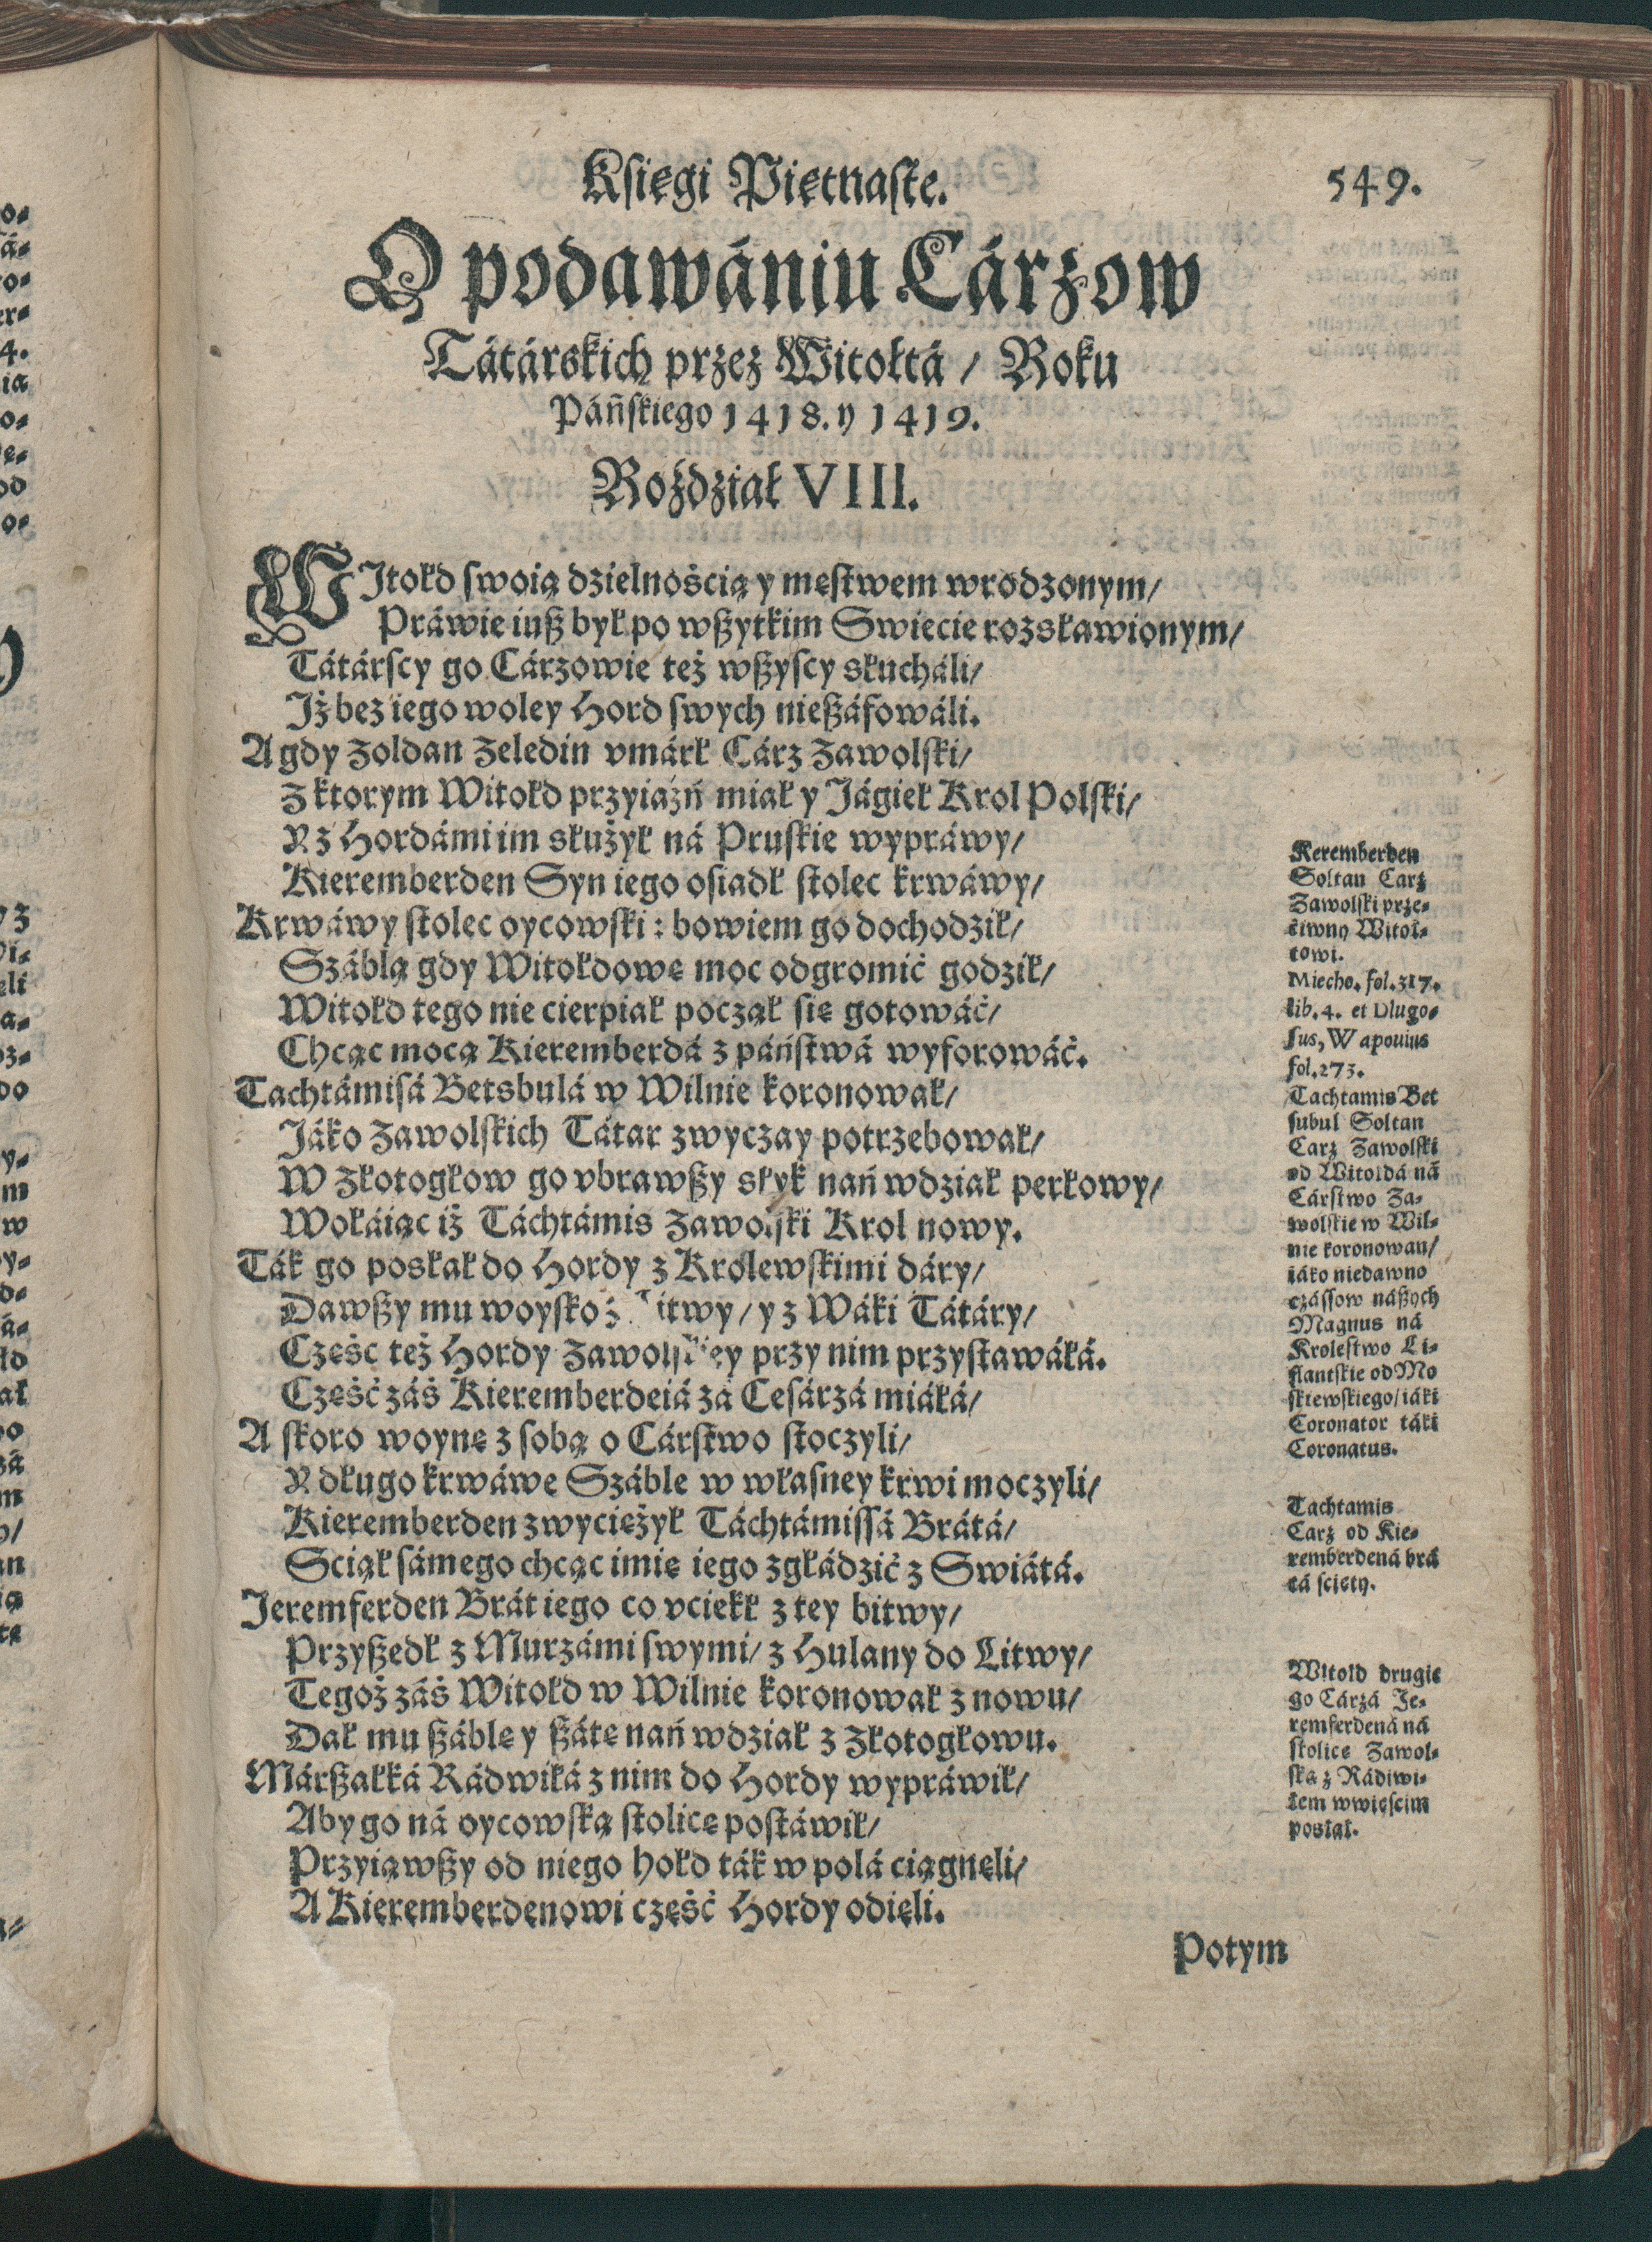 Księgi Piętnaste.
549.
O podawániu Cárzow
Tátárskich przez Witołtá / Roku
Páńskiego 1418. y 1419.
Roździał VIII.
WJtołd swoią dzielnośćią y męstwem wrodzonym/
Práwie iuß był po wßytkim Swiecie rozsławionym/
Tátárscy go Cárzowie też wßyscy słucháli/
Jż bez iego woley Hord swych nießáfowáli.
A gdy Zoldan Zeledin vmárł Cárz Zawolski/
Z ktorym Witołd przyiaźń miał y Jágieł Krol Polski/
Y z Hordámi im służył ná Pruskie wypráwy/
Kieremberden Syn iego osiadł stolec krwáwy/
Krwáwy stolec oycowski: bowiem go dochodził/
Száblą gdy Witołdowę moc odgromić godził/
Witołd tego nie cierpiał począł się gotowáć/
Chcąc mocą Kieremberdá z páństwá wyforowáć.
Tachtámisá Betsbulá w Wilnie koronował/
Jáko Zawolskich Tátar zwyczay potrzebował/
W Złotogłow go vbrawßy słyk nań wdział perłowy/
Wołáiąc iż Táchtámis Zawolski Krol nowy.
Ták go posłał do Hordy z Krolewskimi dáry/
Dawßy mu woysko z itwy/ y z Wáki Tátáry/
Część też Hordy Zawolskiey przy nim przystawáłá.
Część záś Kieremberdeiá zá Cesárzá miáłá/
A skoro woynę z sobą o Cárstwo stoczyli/
Y długo krwáwe Száble w własney krwi moczyli/
Kieremberden zwyciężył Táchtámissá Brátá/
Sciął sámego chcąc imię iego zgłádzić z Swiátá.
Jeremferden Brát iego co vciekł z tey bitwy/
Przyßedł z Murzámi swymi/ z Hulany do Litwy/
Tegoż záś Witołd w Wilnie koronował z nowu/
Dał mu ßáblę y ßátę nań wdział z Złotogłowu.
Márßałká Rádwiłá z nim do Hordy wypráwił/
Aby go ná oycowską stolicę postáwił/
Przyiąwßy od niego hołd ták w polá ciągnęli/
A Kieremberdenowi część Hordy odięli.
Potym
Keremberden
Soltan Carz
Zawolski prze-
ćiwny Witoł-
towi.
Miecho. fol. 317.
lib. 4. et Dlugo-
sus, W apouius
fol. 273.
Tachtamis Bet
subul Soltan
Carz Zawolski
od Witoldá ná
Cárstwo Za-
wolskie w Wil-
nie koronowan/
iáko niedawno
czássow náßych
Magnus ná
Krolestwo Li-
flantskie od Mo
skiewskiego/ iáki
Coronator táki
Coronatus.
Tachtamis
Carz od Kie-
remberdená brá
tá ścięty.
Witold drugie
go Cárzá Je-
remferdená ná
stolicę Zawol-
ską z Rádiwi-
łem wwięścim
posłał.